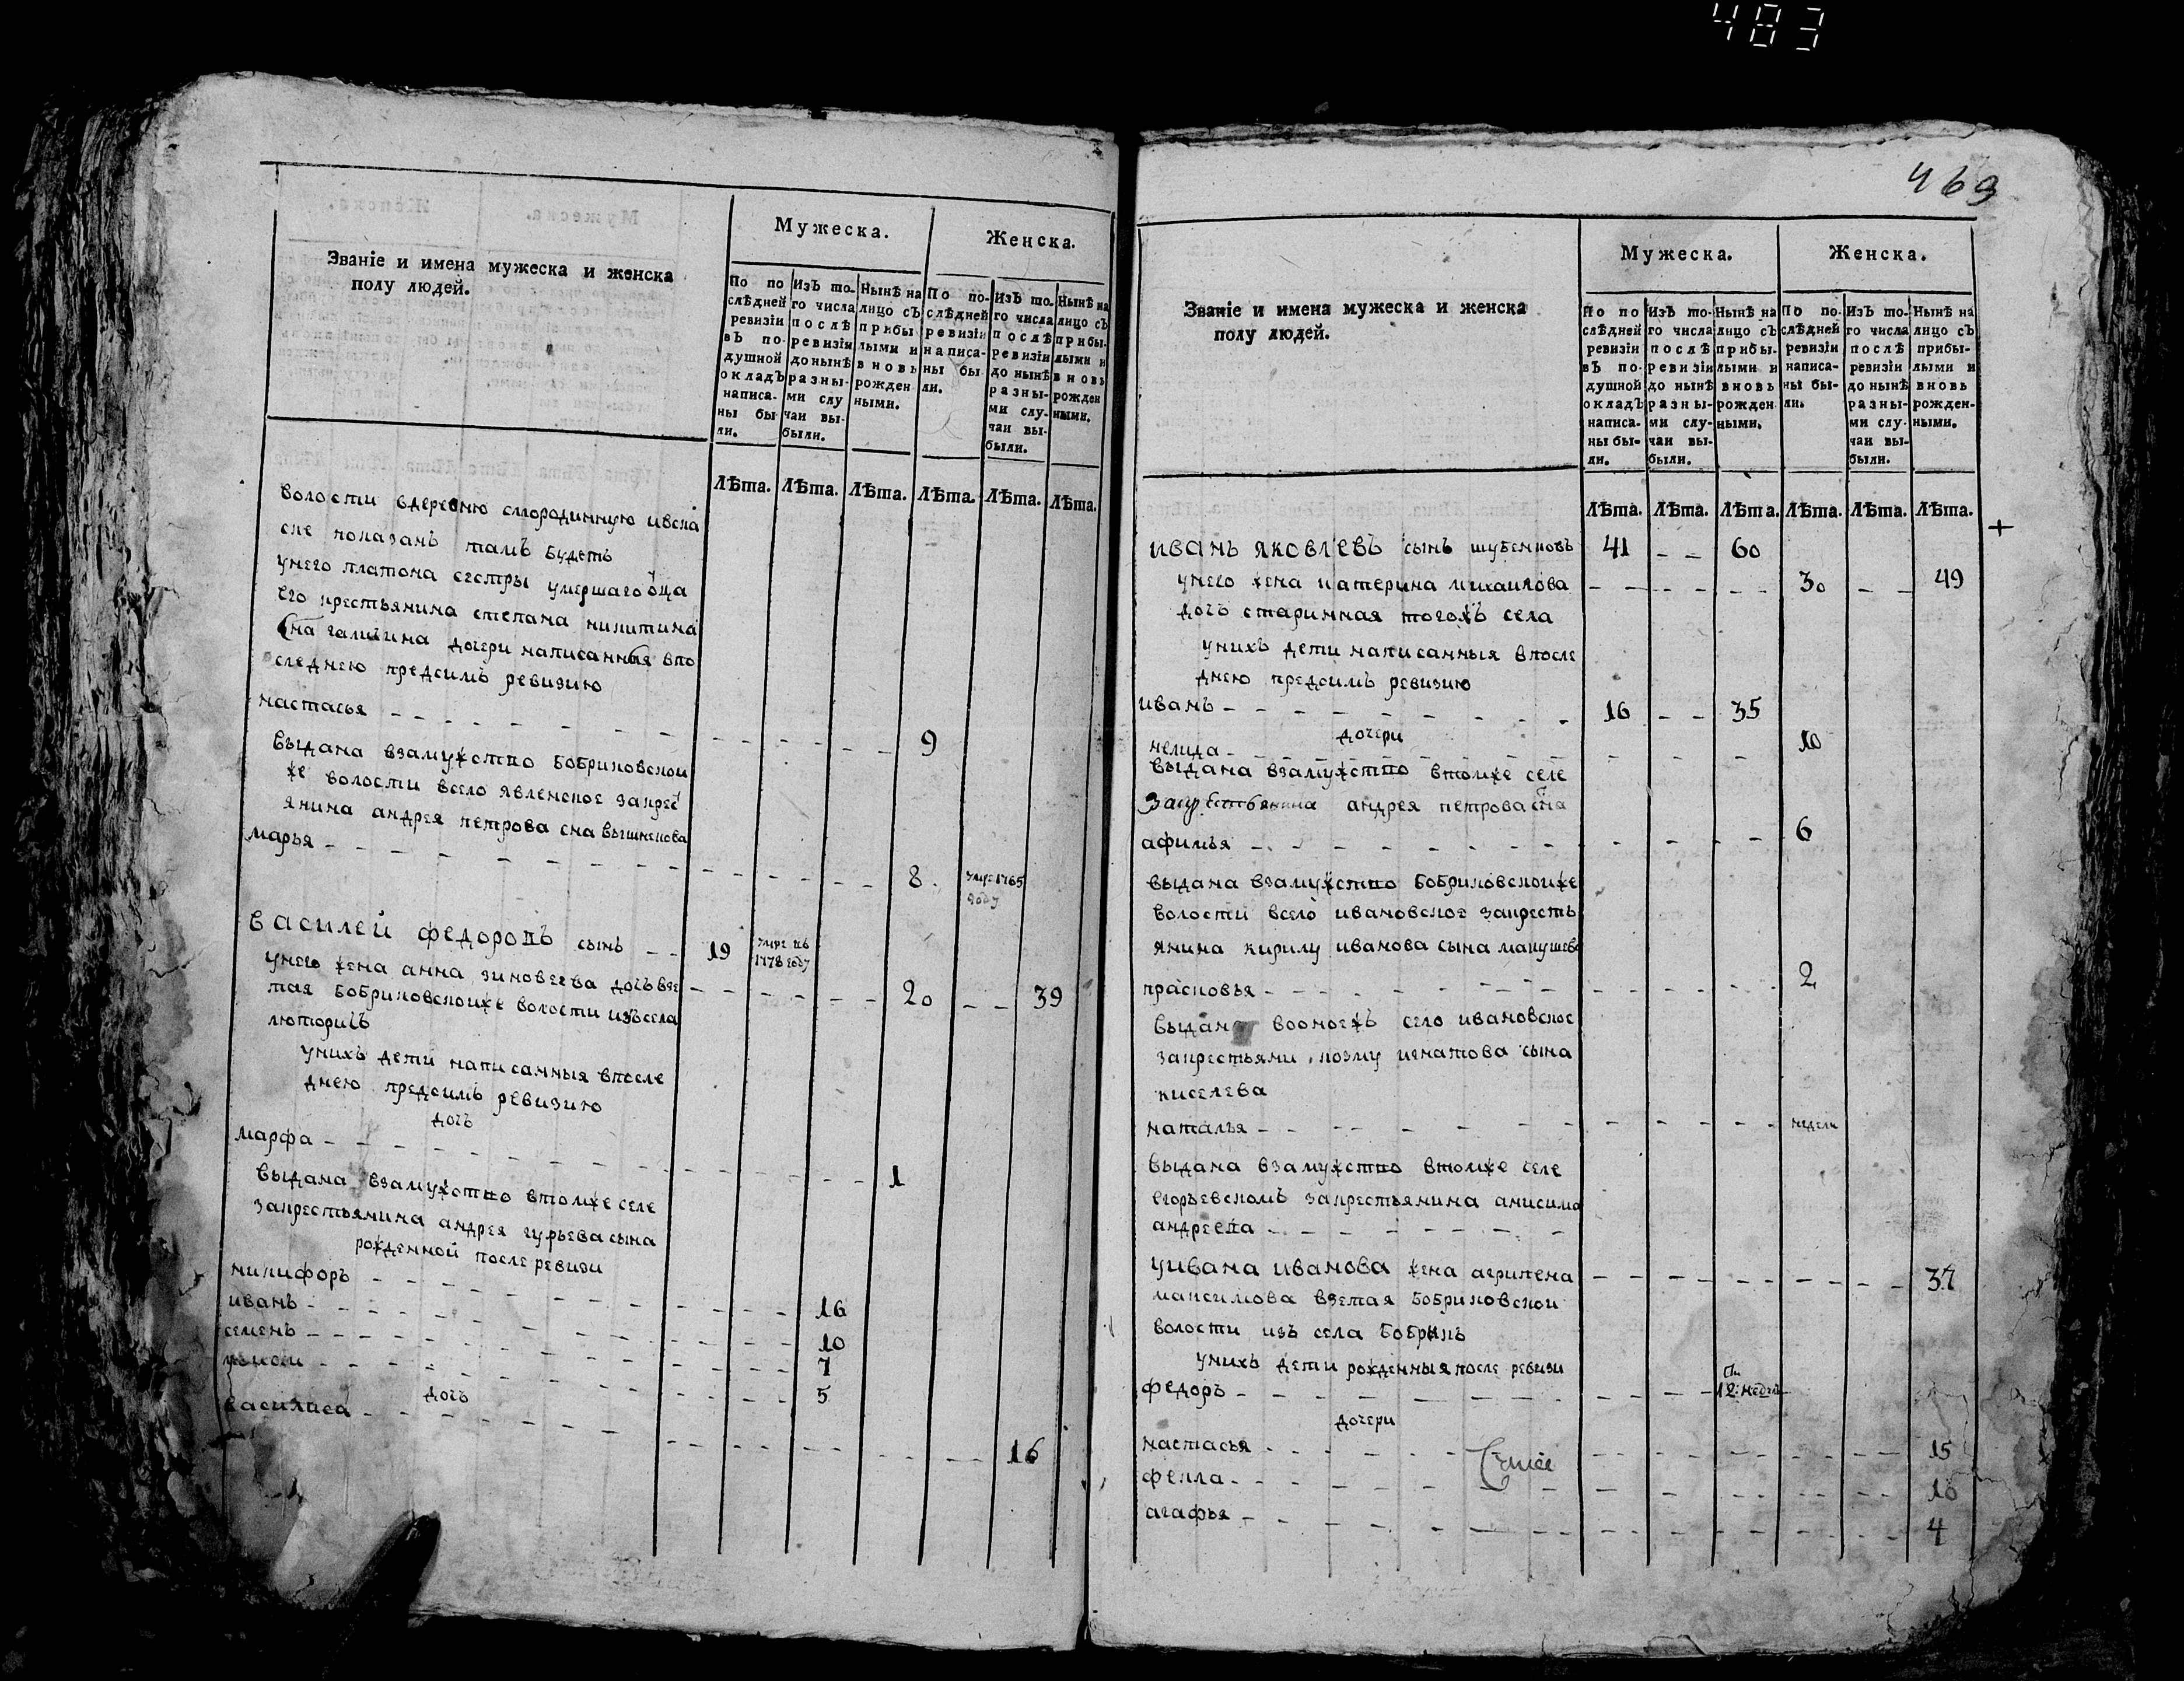 483
Званіе и имена мужеска и женска
полу людей.
Мужеска.
Женска.
По по
слѣдней
ревизіи
вЪ по-
душной
окладЪ
написа-
ны бы
ли.
ИзЪ то-
го числа
послѣ
ревизіи
до нынѣ
разны-
ми слу
чаи вы-
были.
Нынѣ на
лицо сЪ
прибы
лыми и
вновь
рожден
ными.
По по-
слѣдней
ревизіи
написа-
ны бы
ли.
ИзЪ то-
го числа
послѣ
ревизіи
до нынѣ
разны-
ми слу-
чаи вы-
были.
Нынѣ на
лицо сЪ
прибы-
лыми и
вновь
рожден
ными.
Лѣта. Лѣта. Лѣта. Лѣта. Лѣта. Лѣта.
волости вдеревню смородинную ивска
ске показанъ тамъ будетъ
унего платона сестры умершаго оца
его крестьянина степана никитина
сна галкина дочери написанныя впо
следнею предсимъ ревизию
настасья 9
выдана взамужство бобриковской
же волости всело явленское закрес
янина андрея петрова сна
марья 8 умре 1765
году
василей федоровъ сынъ 19 умре въ
1778 году
унего жена анна зиновеева дочь взе 20 39
тая бобриковскойже волости изъ села
люторичъ
унихъ дети написанныя впосле
днею предсимъ ревизию
дочь
марфа 1
выдана взамужство втомже селе
закрестьянина андрея гурьева сына
рожденной после ревизи
никифоръ 16
иванъ 10
семенъ 7
5
дочь
василиса 16
463
Званіе и имена мужеска и женска
полу людей.
Мужеска.
Женска.
По по
слѣдней
ревизіи
вЪ по-
душной
окладЪ
написа-
ны бы-
ли.
ИзЪ то-
го числа
послѣ
ревизіи
до нынѣ
разны-
ми слу-
чаи вы-
были.
Нынѣ на
лицо сЪ
прибы-
лыми и
вновь
рожден
ными.
По по-
слѣдней
ревизіи
написа-
ны бы-
ли.
ИзЪ то-
го числа
послѣ
ревизіи
до нынѣ
разны-
ми слу-
чаи вы-
были.
Нынѣ на
лицо сЪ
прибы-
лыми и
вновь
рожден-
ными.
Лѣта. Лѣта. Лѣта. Лѣта. Лѣта. Лѣта.
+
иванъ яковлевъ сынъ шубенковъ 41 60
унего жена катерина михаилова 30 49
дочь старинная тогожъ села
унихъ дети написанныя впосле
днею предсимъ ревизию
иванъ 16 35
дочери
10
выдана взамужство втомже селе
закрестьянина андрея петрова сна
афимья 6
выдана взамужство бобриковскойже
волости всело ивановское закресть
янина кирилу иванова сына
прасковья 2
выдана воономжъ село ивановское
закрестьяни козму игнатова сына
киселева
наталья недели
выдана взамужство втомже селе
егорьевскомъ закрестьянина анисима
андреева
уивана иванова жена агрипена 37
максимова взетая бобриковской
волости изъ села бобрикъ
унихъ дети рожденныя после ревизи
федоръ 12: недель
дочери
настасья 15
фекла 10
агафья 4